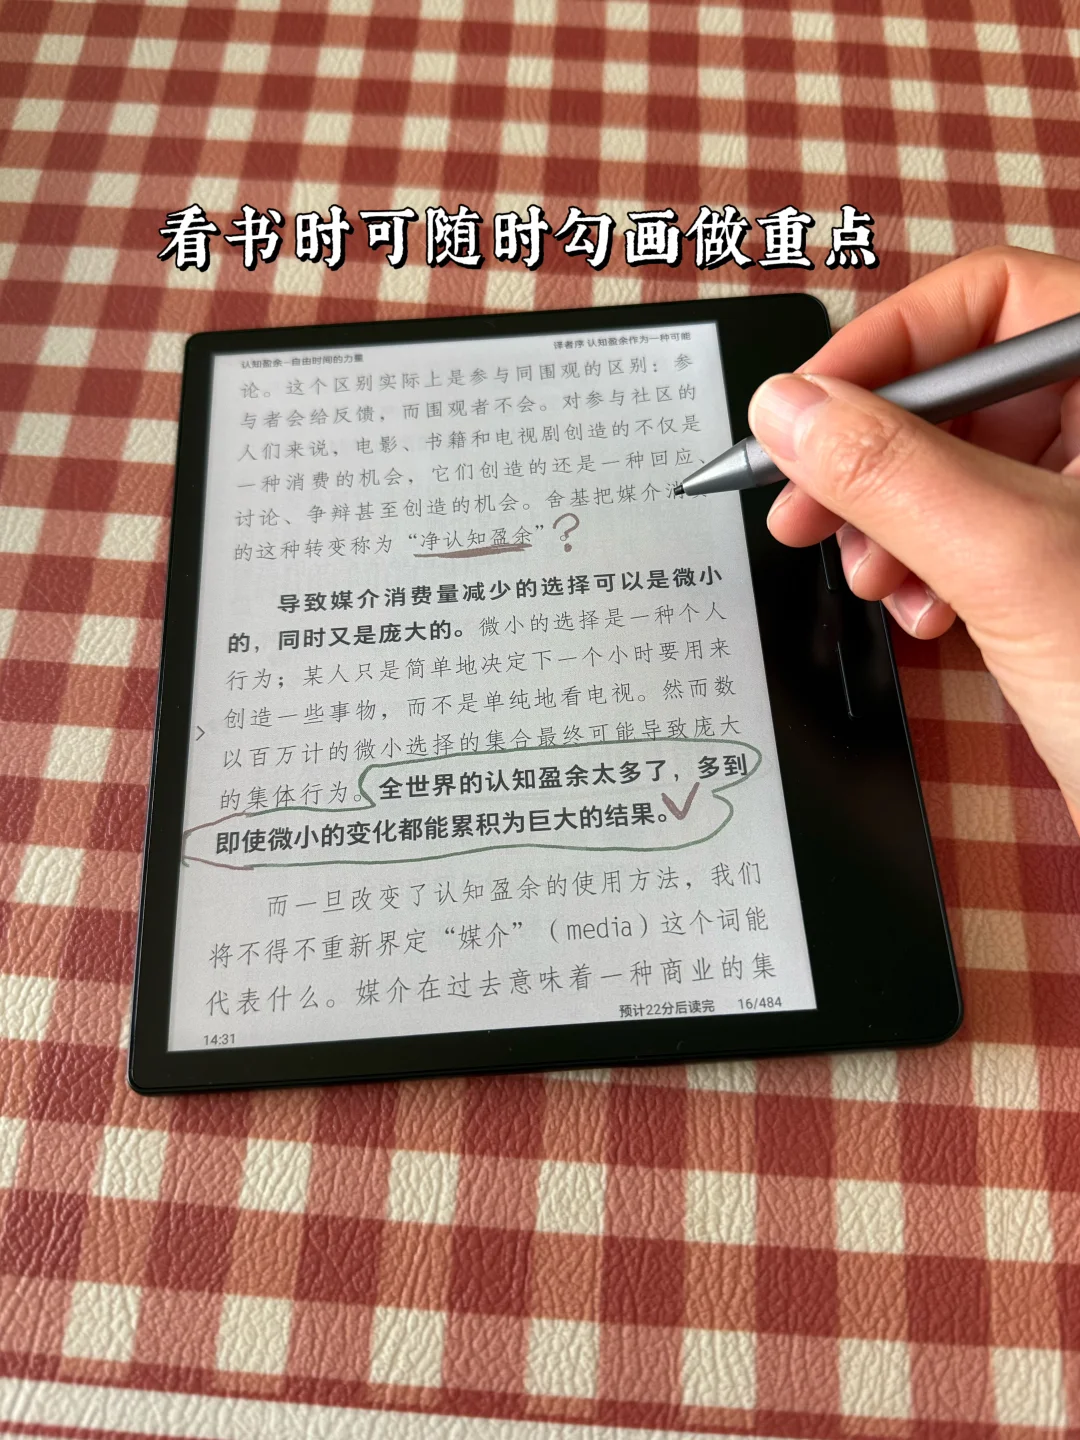 看书时可随时勾画做重点
认知盈余-自由时间的力量
译者序 认知盈余作为一种可能
论。这个区别实际上是参与同围观的区别：参
与者会给反馈，而围观者不会。对参与社区的
人们来说，电影、书籍和电视剧创造的不仅是
一种消费的机会，它们创造的还是一种回应、
讨论、争辩甚至创造的机会。舍基把媒介消
的这种转变称为“净认知盈余”。?
导致媒介消费量减少的选择可以是微小
的，同时又是庞大的。微小的选择是一种个人
行为；某人只是简单地决定下一个小时要用来
创造一些事物，而不是单纯地看电视。然而数
以百万计的微小选择的集合最终可能导致庞大
的集体行为。全世界的认知盈余太多了，多到
即使微小的变化都能累积为巨大的结果。
而一旦改变了认知盈余的使用方法，我们
将不得不重新界定“媒介”（media）这个词能
代表什么。媒介在过去意味着一种商业的集
14:31
预计22分后读完 16/484